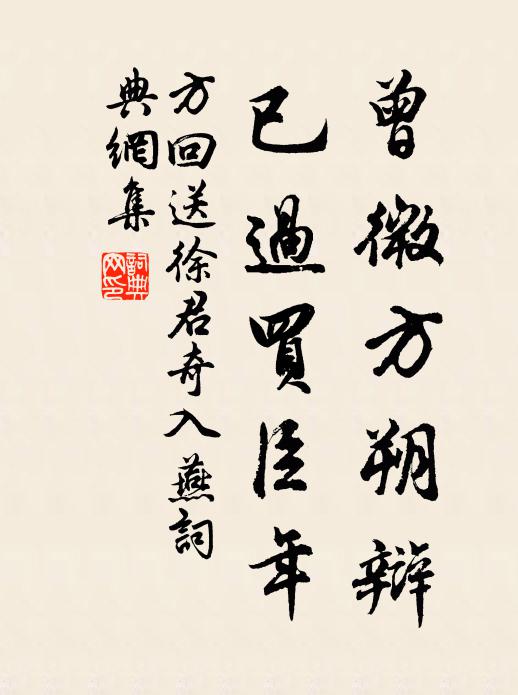 曾微方朔辯
已過買臣年
方回送徐君奇入燕詞
典網集
詞典網印